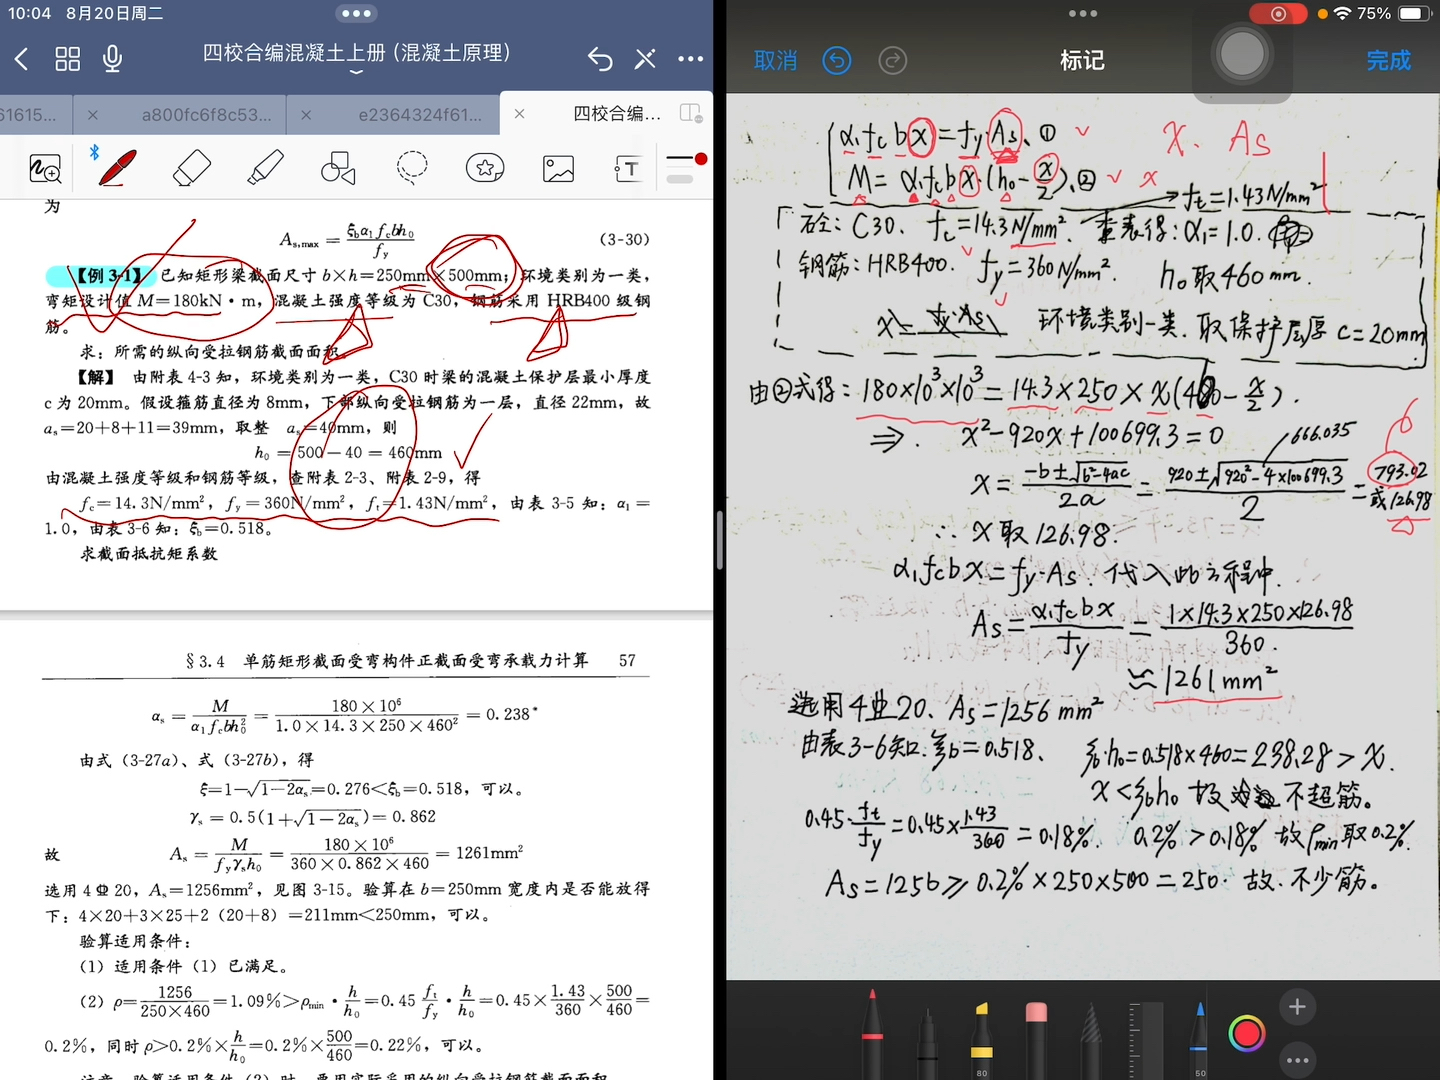 10:04 8月20日周二
75%
四校合编混凝土上册 (混凝土原理)
取消
标记
完成
61615...
a800fc6f8c53...
e2364324f61...
四校合编...
为
A_{s,max} = ξ_bα_1f_cbh_0 / f_y (3-30)
【例 3-1】 已知矩形梁截面尺寸 b×h=250mm×500mm;环境类别为一类,
弯矩设计值 M=180kN·m,混凝土强度等级为 C30,钢筋采用 HRB400 级钢
筋。
求:所需的纵向受拉钢筋截面面积。
【解】 由附表 4-3 知,环境类别为一类,C30 时梁的混凝土保护层最小厚度
c 为 20mm。假设箍筋直径为 8mm,下部纵向受拉钢筋为一层,直径 22mm,故
a_s=20+8+11=39mm,取整 a_s=40mm,则
h_0 = 500 − 40 = 460mm
由混凝土强度等级和钢筋等级,查附表 2-3、附表 2-9,得
f_c=14.3N/mm²,f_y=360N/mm²,f_t=1.43N/mm²,由表 3-5 知:α_1=
1.0,由表 3-6 知:ξ_b=0.518。
求截面抵抗矩系数
§3.4 单筋矩形截面受弯构件正截面受弯承载力计算 57
α_s = M / α_1f_cbh_0² = 180×10⁶ / 1.0×14.3×250×460² = 0.238*
由式 (3-27a)、式 (3-27b),得
ξ=1−√1−2α_s=0.276<ξ_b=0.518,可以。
γ_s = 0.5(1+√1−2α_s) = 0.862
故 A_s = M / f_yγ_sh_0 = 180×10⁶ / 360×0.862×460 = 1261mm²
选用 4⌀20,A_s=1256mm²,见图 3-15。验算在 b=250mm 宽度内是否能放得
下:4×20+3×25+2 (20+8) =211mm<250mm,可以。
验算适用条件:
(1) 适用条件 (1) 已满足。
(2) ρ=1256 / 250×460=1.09%>ρ_min·h/h_0=0.45 f_t/f_y·h/h_0=0.45×1.43/360×500/460=
0.2%,同时 ρ>0.2%×h/h_0=0.2%×500/460=0.22%,可以。
α_1f_cbx=f_y·A_s、① x、As
M=α_1f_cbx·(h_0−x/2)、② x
f_t=1.43N/mm²
砼:C30. f_c=14.3N/mm². 查表得:α_1=1.0.
钢筋:HRB400. f_y=360N/mm². h_0取460mm.
环境类别一类.取保护层厚c=20mm
由②式得:180×10³×10³=14.3×250×x(460−x/2).
⇒. x²−920x+100699.3=0
666.035
x=−b±√b²−4ac / 2a=920±√920²−4×100699.3 / 2=793.02
或126.98
∴ x取126.98.
α_1f_cbx=f_y·A_s.代入此方程中.
A_s=α_1f_cbx / f_y=1×14.3×250×126.98 / 360.
≈1261mm²
选用4⌀20、A_s=1256mm²
由表3-6知.ξb=0.518、 ξb·h_0=0.518×460=238.28>x.
x<ξbh_0 故 不超筋。
0.45·f_t/f_y=0.45×1.43/360=0.18%. 0.2%>0.18% 故ρmin取0.2%.
A_s=1256≥0.2%×250×500=250.故.不少筋。
80
50